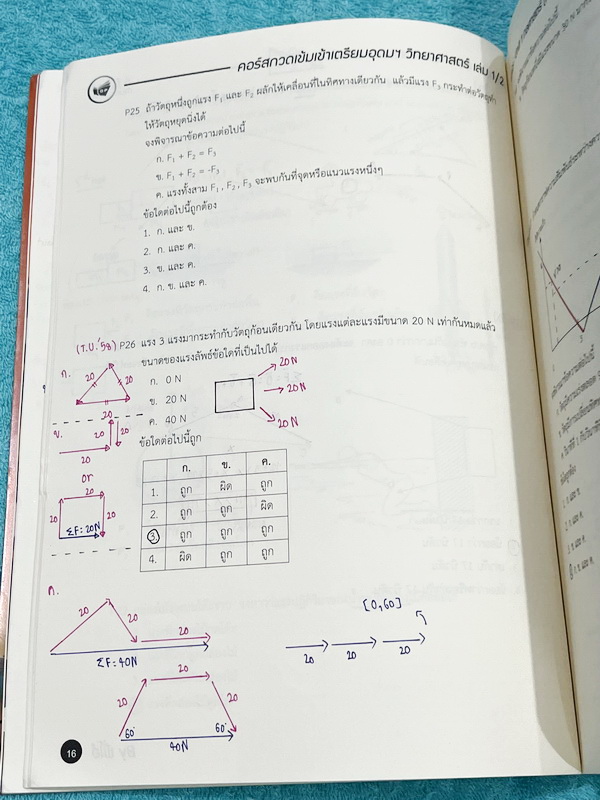 คอร์สกวดเข้มเข้าเตรียมอุดมฯ วิทยาศาสตร์ เล่ม 1/2
P25 ถ้าวัตถุหนึ่งถูกแรง F₁ และ F₂ ผลักให้เคลื่อนที่ในทิศทางเดียวกัน แล้วมีแรง F₃ กระทำต่อวัตถุทำ
ให้วัตถุหยุดนิ่งได้
จงพิจารณาข้อความต่อไปนี้
ก. F₁ + F₂ = F₃
ข. F₁ + F₂ = -F₃
ค. แรงทั้งสาม F₁ , F₂ , F₃ จะพบกันที่จุดหรือแนวแรงหนึ่งๆ
ข้อใดต่อไปนี้ถูกต้อง
1. ก. และ ข.
2. ก. และ ค.
3. ข. และ ค.
4. ก. ข. และ ค.
(T.U.'58) P26 แรง 3 แรงมากระทำกับวัตถุก้อนเดียวกัน โดยแรงแต่ละแรงมีขนาด 20 N เท่ากันหมดแล้ว
ขนาดของแรงลัพธ์ข้อใดที่เป็นไปได้
ก. 0 N
ข. 20 N
ค. 40 N
20N
20N
20N
ข้อใดต่อไปนี้ถูก
ก. ข. ค.
1. ถูก ผิด ถูก
2. ถูก ถูก ผิด
3. ถูก ถูก ถูก
4. ผิด ถูก ถูก
ก.
20 20
20
ข.
20 20
20
or
20
20 20
ΣF = 20N
ค.
20 20 20
ΣF = 40N
20
20 20
60° 60°
40N
[0,60]
20 20 20
16